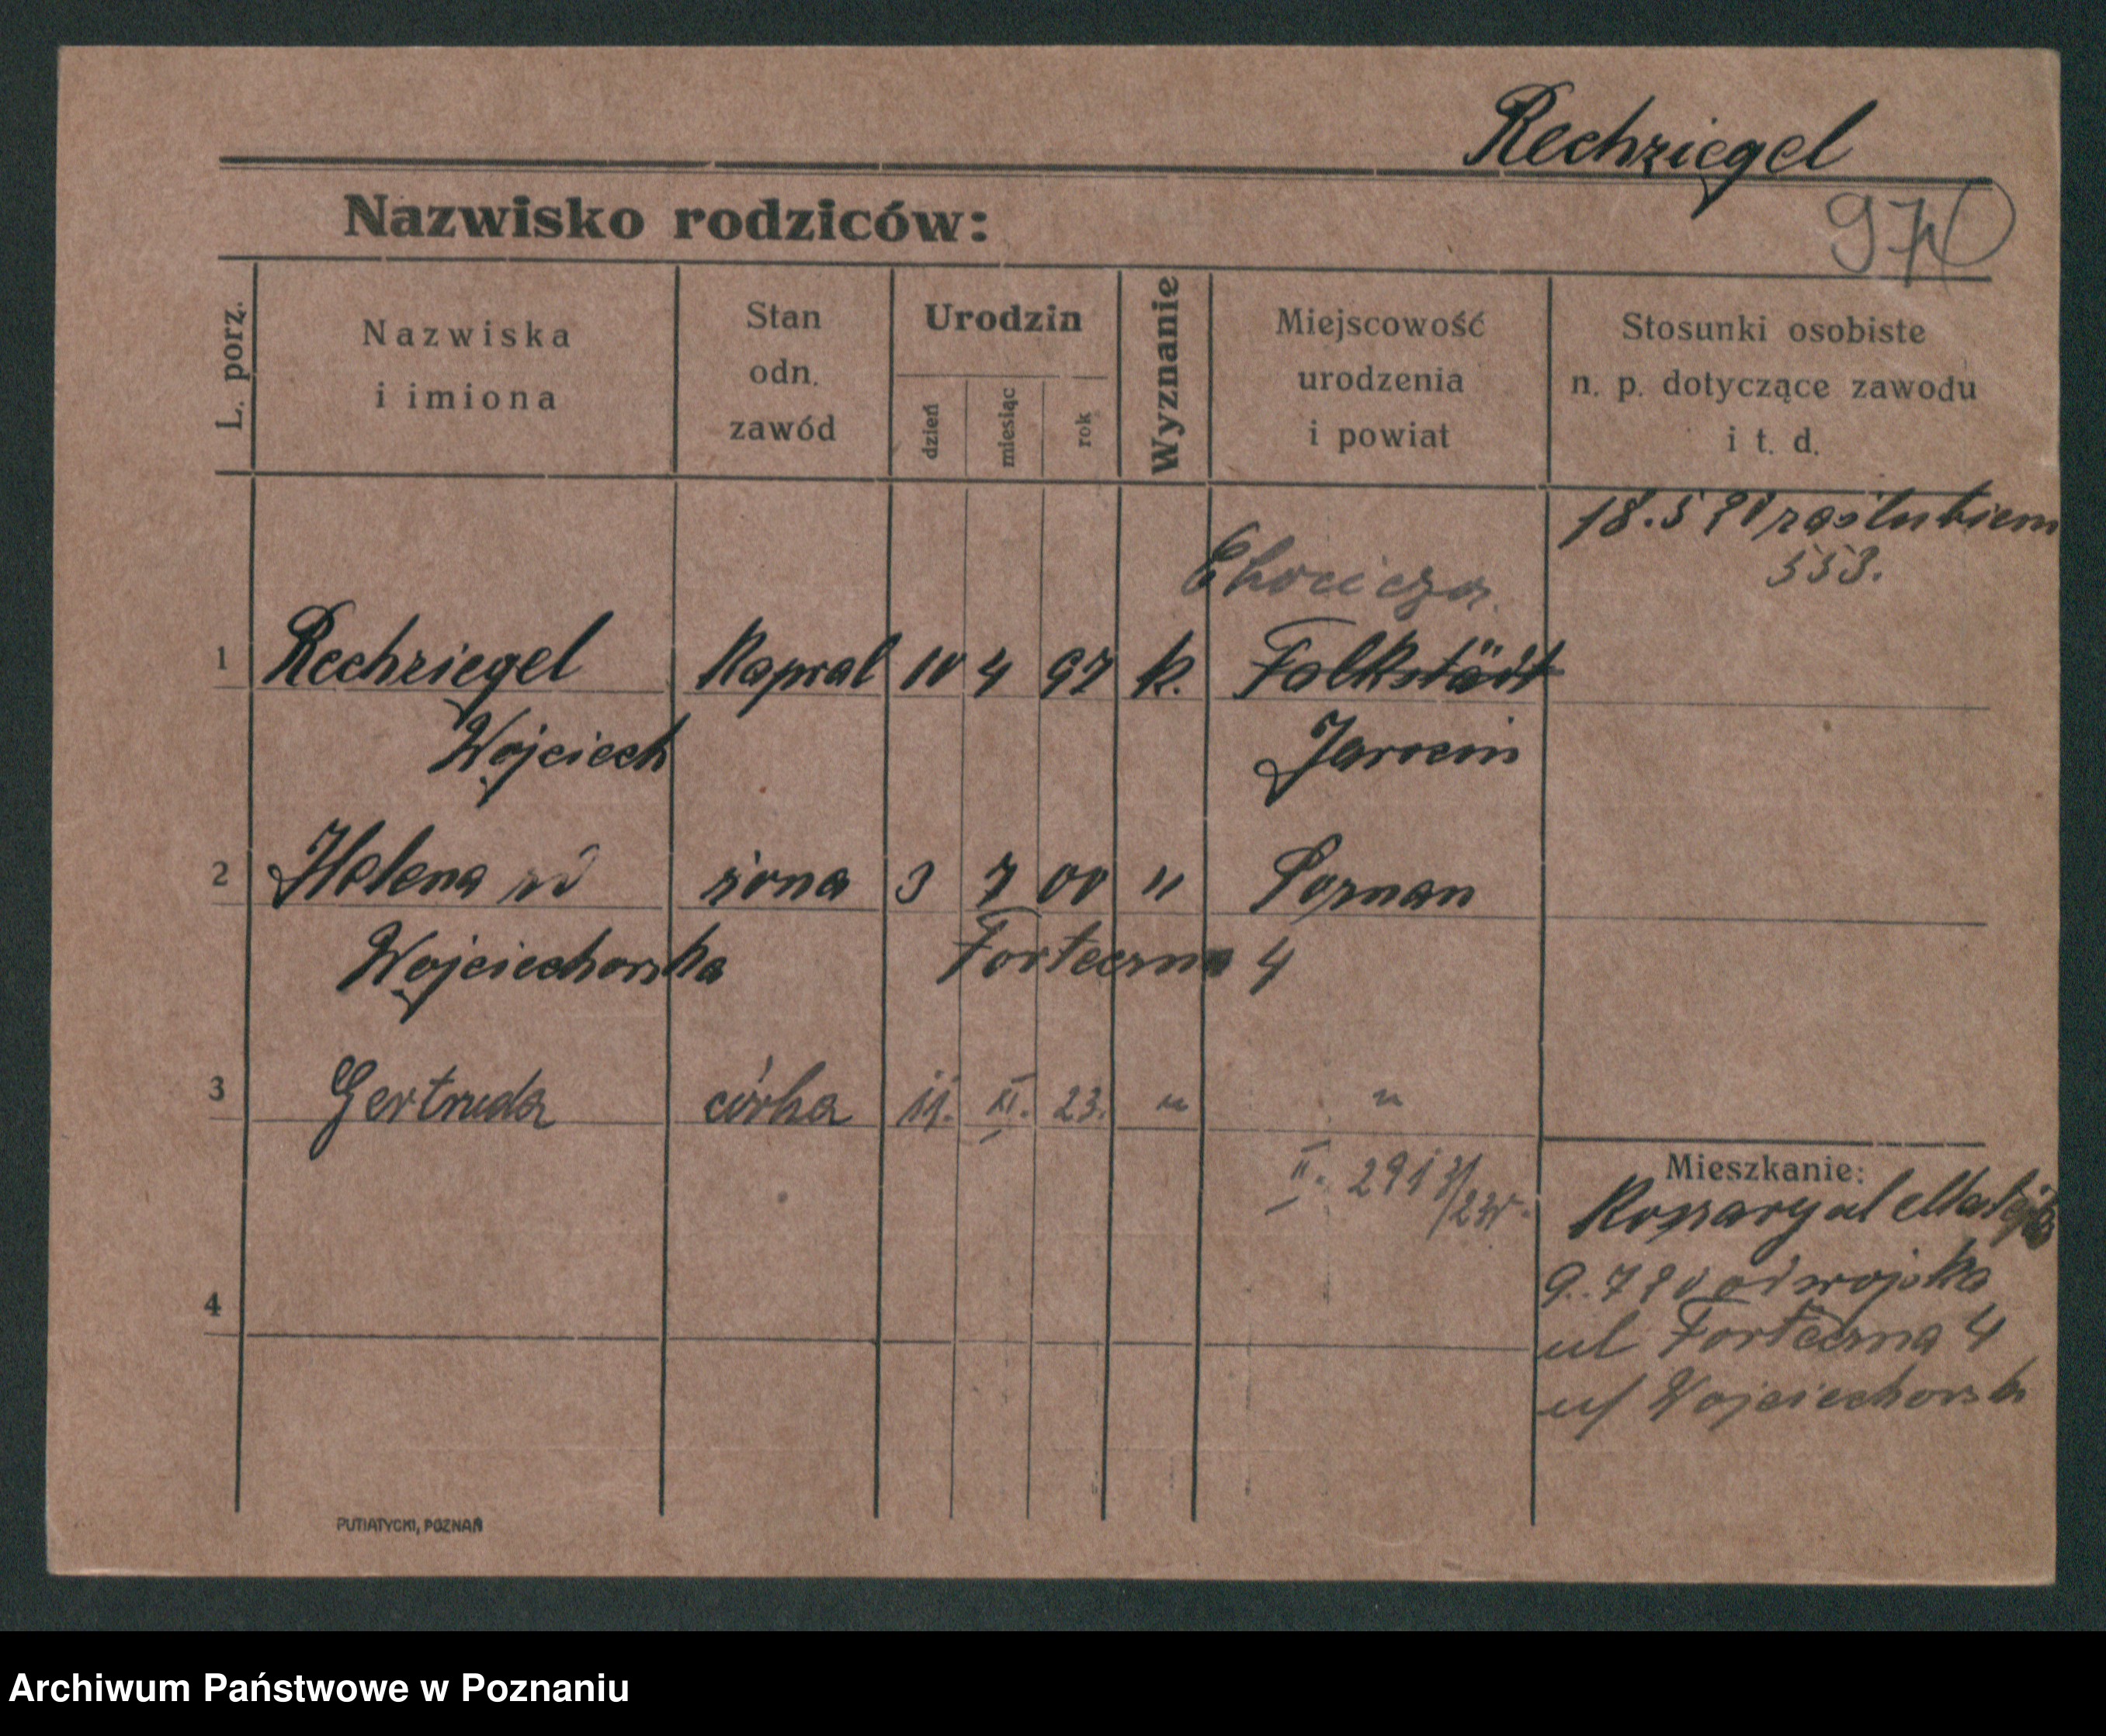 Rechziegel
Nazwisko rodziców:
97
L. porz.
Nazwiska
i imiona
Stan
odn.
zawód
Urodzin
dzień
miesiąc
rok
Wyznanie
Miejscowość
urodzenia
i powiat
Stosunki osobiste
n. p. dotyczące zawodu
i t. d.
18.5 20 zaślubiem
553.
Chocicza
1 Rechziegel Kapral 10 4 97 k. Falkstädt
Wojciech Jarocin
2 Helena żona 3 7 00 " Poznan
Wojciechowska Forteczna 4
3 Gertruda córka 11. II. 23. " "
II. 291
Mieszkanie:
Koszary ul Matejki
9.7 20 od wojska
4
ul Forteczna 4
Wojciechowsk
PUTIATYCKI, POZNAŃ
Archiwum Państwowe w Poznaniu